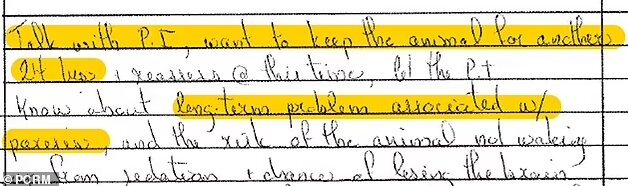 Talk with P.I, want to keep the animal for another
24 hrs & reassess @ this time, let the P.I
know about long-term problem associated w/
paresis, and the risk of the animal not waking
from sedation & chance of losing the brain
© PCRM